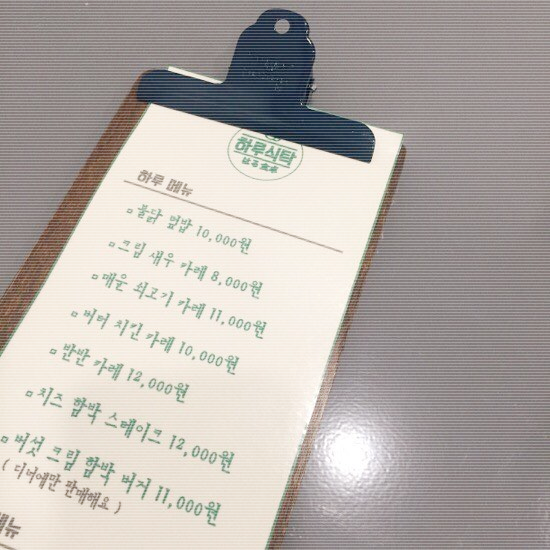 하루식탁
はる食卓
하루 메뉴
불닭 덮밥 10,000원
크림 새우 카레 8,000원
매운 쇠고기 카레 11,000원
버터 치킨 카레 10,000원
반반 카레 12,000원
치즈 함박 스테이크 12,000원
버섯 크림 함박 버거 11,000원
( 디너에만 판매해요 )
메뉴